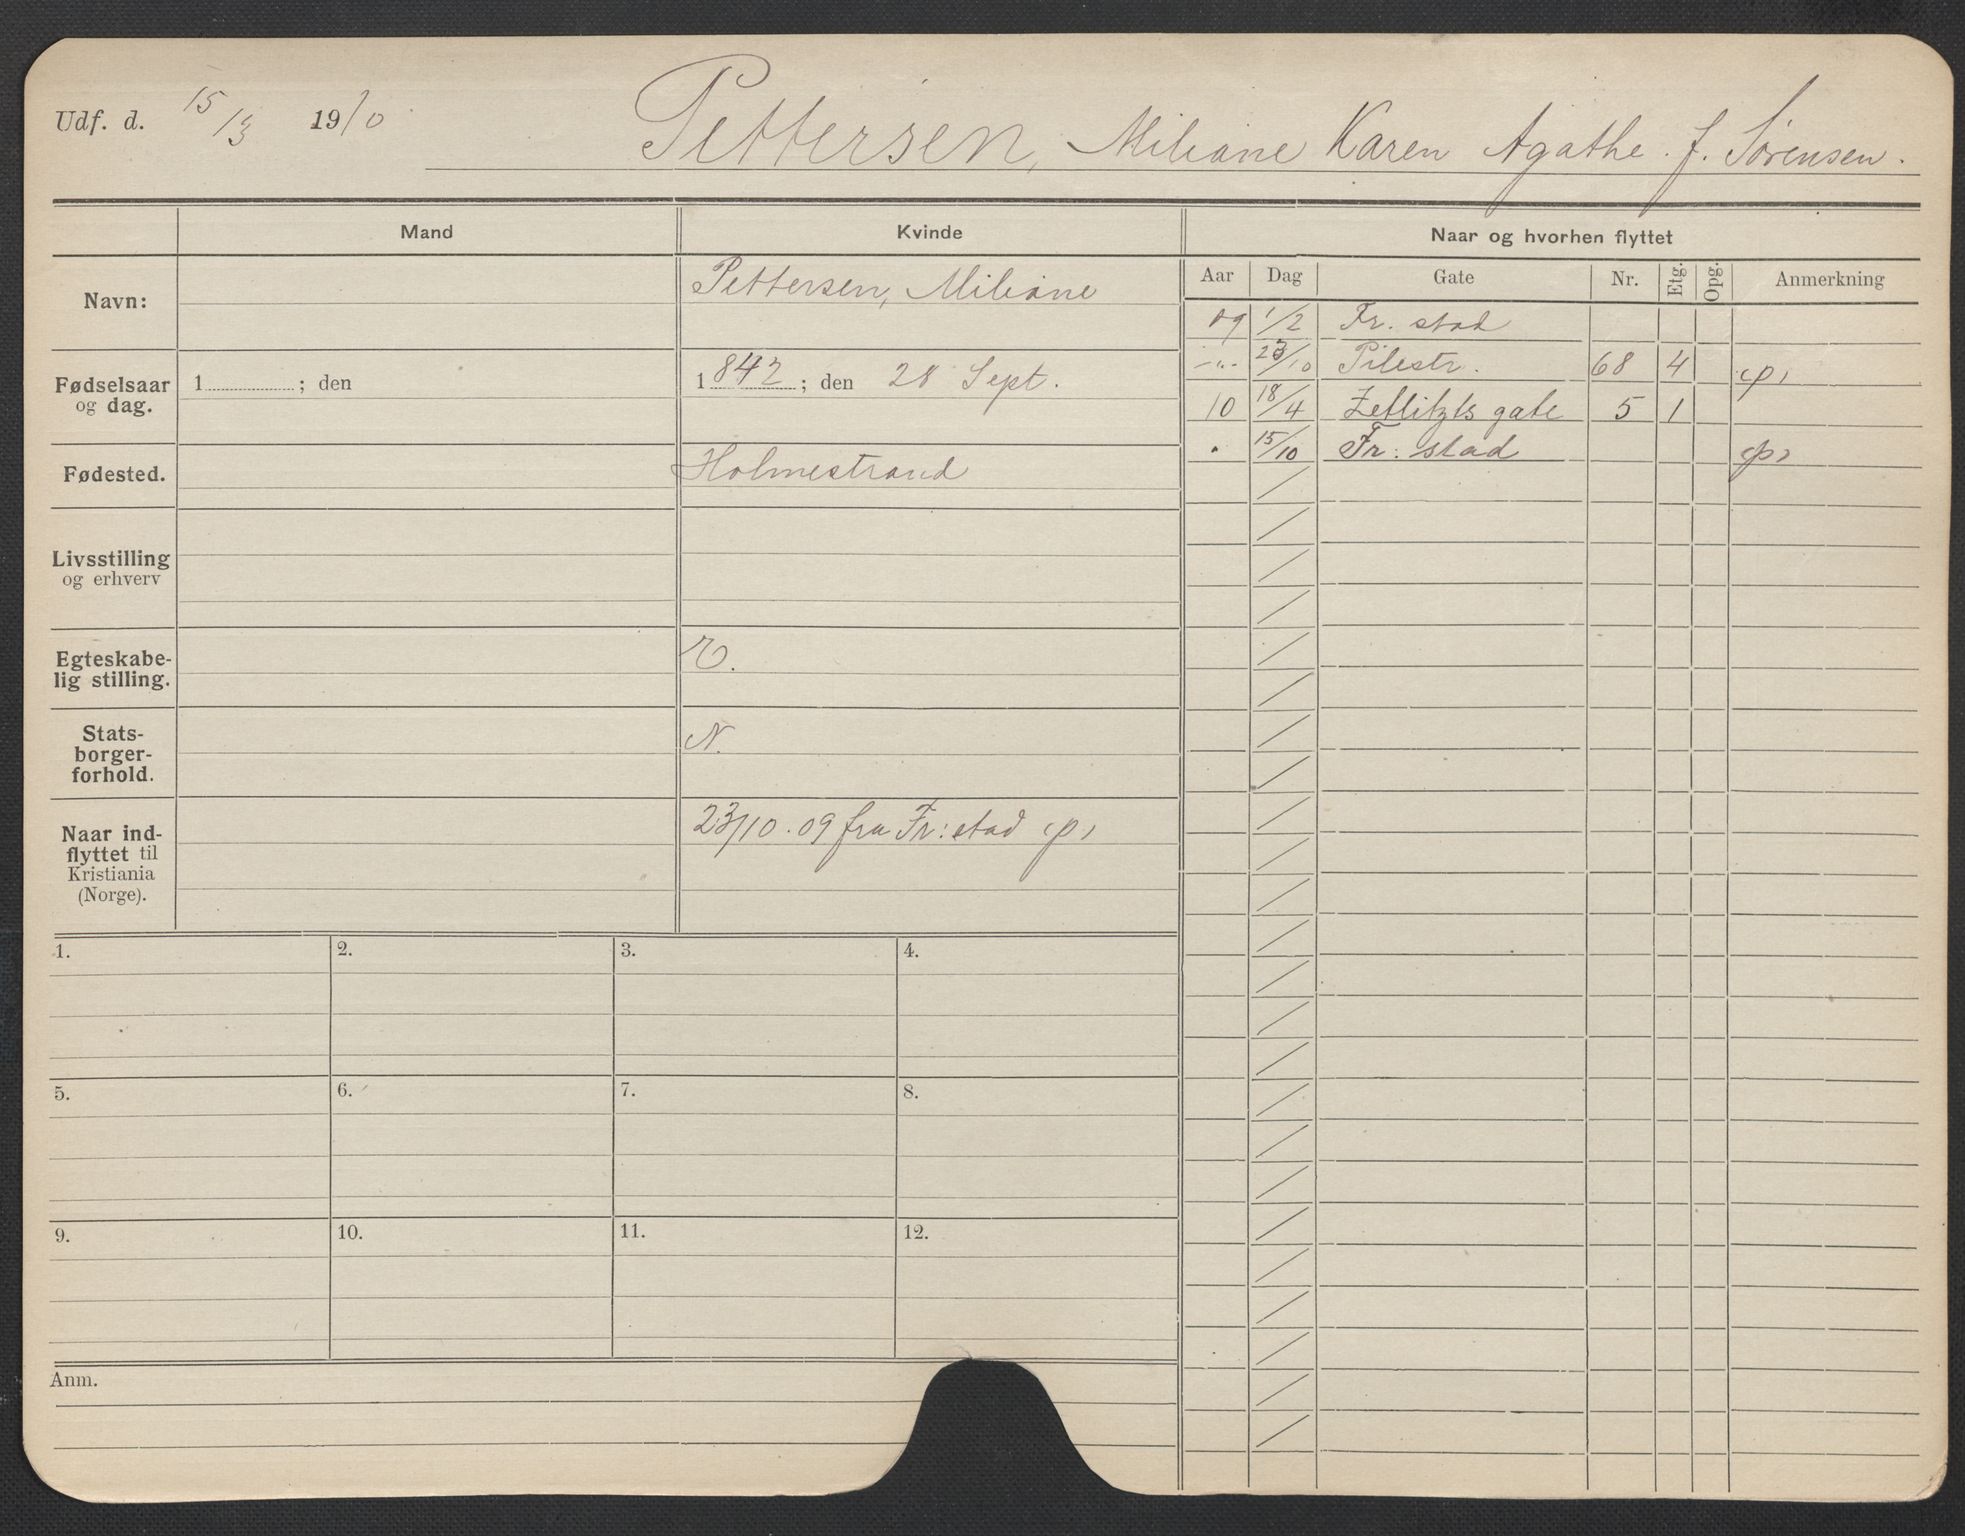 Udf. d. 15/3 1910 Pettersen, Miliane Karen Agathe. f. Sørensen.
Mand Kvinde Naar og hvorhen flyttet
Navn: Pettersen, Miliane
Fødselsaar og dag. 1 ; den 1842 ; den 28 Sept.
Fødested. Holmestrand
Livsstilling og erhverv
Egteskabe-
lig stilling. E.
Stats-
borger-
forhold. N.
Naar ind-
flyttet til
Kristiania
(Norge). 23/10.09 fra Fr:stad (p)
Aar Dag Gate Nr. Etg. Opg. Anmerkning
09 1/2 Fr. stad
-"- 23/10 Pilestr. 68 4 (p)
10 18/4 Zetlitzls gate 5 1
" 15/10 Fr: stad (p)
1. 2. 3. 4.
5. 6. 7. 8.
9. 10. 11. 12.
Anm.